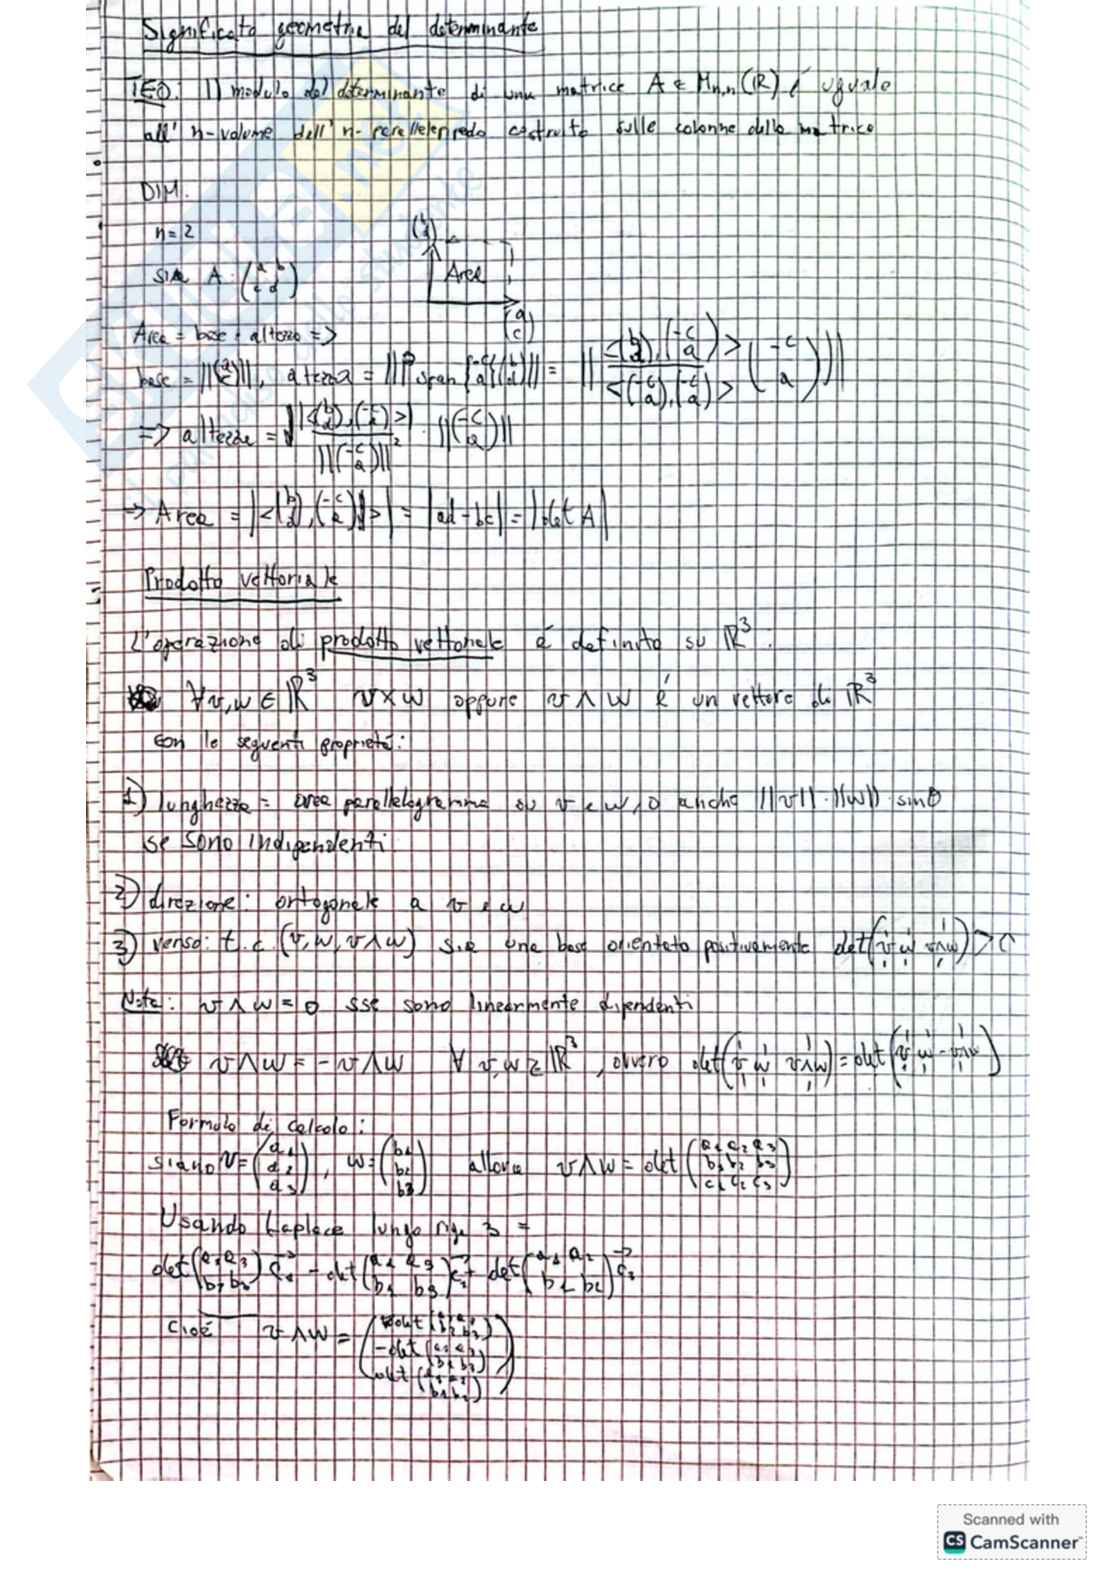 Significato geometrico del determinante
TEO: Il modulo del determinante di una matrice A ∈ Mn,n(R) é uguale
all' n-volume dell' n-parallelepipedo costruito sulle colonne della matrice
DIM.
n=2
(b d)
SIA A: (a b c d)
Area
(a c)
Area = base · altezza =>
base = ||(a c)||, altezza = ||P span{(-c a)}(b d)|| = || <(b d),(-c a)> / <(-c a),(-c a)> (-c a) ||
=> altezza = |<(b d),(-c a)>| / ||(-c a)||² · ||(-c a)||
=> Area = |<(b d),(-c a)>| = |ad-bc| = |det A|
Prodotto vettoriale
L'operazione di prodotto vettoriale é definito su R³.
∀v,w ∈ R³ v×w oppure v∧w é un vettore di R³
con le seguenti proprietá:
1) lunghezza = area parallelogramma su v e w, o anche ||v||·||w||·sinθ
se sono indipendenti
2) direzione: ortogonale a v e w
3) verso: t.c. (v,w,v∧w) sia una base orientata positivamente det(v w v∧w)>0
Nota: v∧w=0 sse sono linearmente dipendenti
v∧w = -v∧w ∀ v,w ∈ R³, ovvero det(v w v∧w) = det(v w -v∧w)
Formula di calcolo:
siano v=(a1 a2 a3), w=(b1 b2 b3) allora v∧w = det(a1 a2 a3 b1 b2 b3 c1 c2 c3)
Usando Laplace lungo riga 3 =
det(a2 a3 b2 b3) c1 - det(a1 a3 b1 b3) c2 + det(a1 a2 b1 b2) c3
Cioé v∧w = (det(a2 a3 b2 b3) -det(a1 a3 b1 b3) det(a1 a2 b1 b2))
Scanned with
CS CamScanner